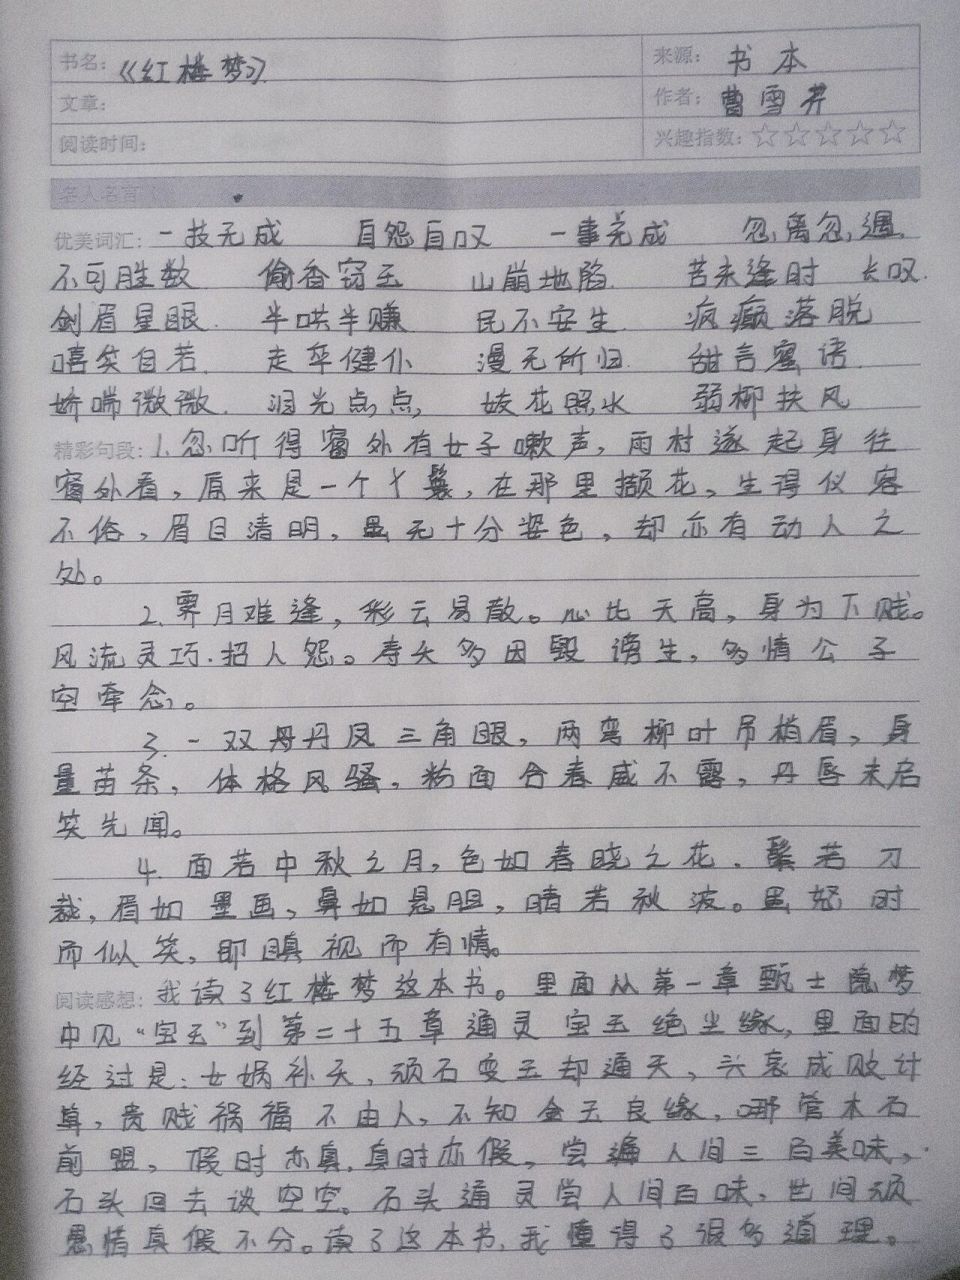 书名：《红楼梦》
来源：书本
文章：
作者：曹雪芹
阅读时间：
兴趣指数：☆☆☆☆☆
名人名言
优美词汇：一技无成 自怨自叹 一事无成 忽离忽遇
不可胜数 偷香窃玉 山崩地陷 苦未逢时 长叹
剑眉星眼 半哄半赚 民不安生 疯癫落脱
嘻笑自若 走卒健仆 漫无所归 甜言蜜语
娇喘微微 泪光点点 姣花照水 弱柳扶风
精彩句段：1.忽听得窗外有女子嗽声，雨村遂起身往
窗外看，原来是一个丫鬟，在那里撷花，生得仪容
不俗，眉目清明，虽无十分姿色，却亦有动人之
处。
2.霁月难逢，彩云易散。心比天高，身为下贱。
风流灵巧.招人怨。寿夭多因毁谤生，多情公子
空牵念。
3.一双丹丹凤三角眼，两弯柳叶吊梢眉，身
量苗条，体格风骚，粉面含春威不露，丹唇未启
笑先闻。
4.面若中秋之月，色如春晓之花.鬓若刀
裁，眉如墨画，鼻如悬胆，睛若秋波。虽怒时
而似笑，即瞋视而有情。
阅读感想：我读了红楼梦这本书。里面从第一章甄士隐梦
中见“宝玉”到第二十五章通灵宝玉绝尘缘，里面的
经过是：女娲补天，顽石变玉却通天，兴衰成败计
算，贵贱祸福不由人，不知金玉良缘，哪管木石
前盟，假时亦真，真时亦假，尝遍人间三百美味，
石头回去谈空空。石头通灵尝人间百味，世间顽
愚情真假不分。读了这本书，我懂得了很多道理。